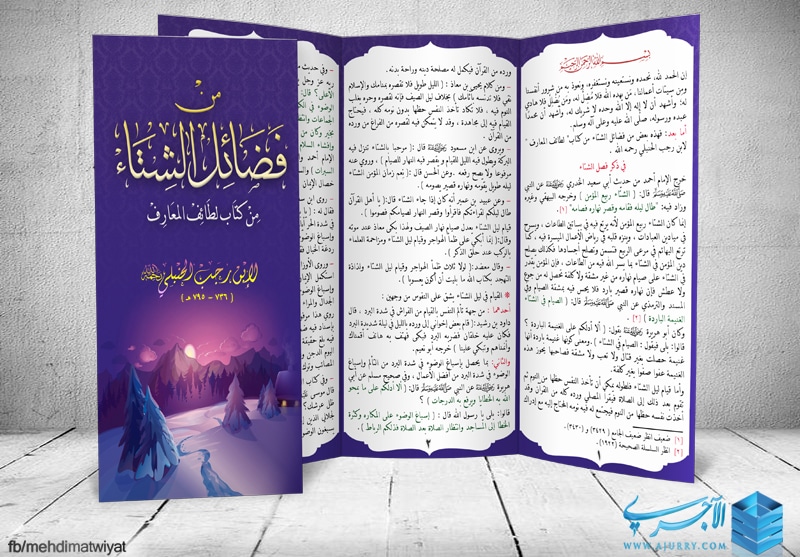 من
فضائل الشتاء
من كتاب لطائف المعارف
للإبن رجب الحنبلي رحمه الله
( ٧٣٦ - ٧٩٥ هـ )
بسم الله الرحمن الرحيم
إن الحمد لله، نحمده ونستعينه ونستغفره، ونعوذ به من شرور أنفسنا
ومن سيئات أعمالنا، من يهده الله فلا مضل له، ومن يضلل فلا هادي
له؛ وأشهد أن لا إله إلا الله وحده لا شريك له، وأشهد أن محمدًا
عبده ورسوله، صلى الله عليه وعلى آله وسلم.
أما بعد: فهذه بعض من فضائل الشتاء من كتاب" لطائف المعارف -
لابن رجب الحنبلي رحمه الله .
في ذكر فصل الشتاء
خرج الإمام أحمد من حديث أبي سعيد الخدري عن النبي
ﷺ قال: ( الشتاء ربيع المؤمن ) وخرجه البيهقي وغيره
وزاد فيه: "طال ليله فقامه وقصر نهاره فصامه" [١].
إنما كان الشتاء ربيع المؤمن لأنه يرتع فيه في بساتين الطاعات ، ويسرح
في ميادين العبادات ، وينزه قلبه في رياض الأعمال الميسرة فيه ، كما
ترتع البهائم في مرعى الربيع فتسمن وتصلح أجسادها؛ فكذلك يصلح
دين المؤمن في الشتاء بما يسر الله فيه من الطاعات ، فإن المؤمن يقدر
في الشتاء على صيام نهاره من غير مشقة ولا كلفة تحصل له من جوع
ولا عطش فإن نهاره قصير بارد فلا يحس فيه بمشقة الصيام ، وفي
المسند والترمذي عن النبي ﷺ قال: ( الصيام في الشتاء
الغنيمة الباردة ) [٢] .
وكان أبو هريرة يقول : ( ألا أدلكم على الغنيمة الباردة ؟
قالوا: بلى فيقول : الصيام في الشتاء ) ، ومعنى كونها غنيمة باردة أنها
غنيمة حصلت بغير قتال ولا تعب ولا مشقة فصاحبها يحوز هذه
الغنيمة عفوا صفوا بغير كلفة.
وأما قيام ليل الشتاء فلطوله يمكن أن تأخذ النفس حظها من النوم ثم
تقوم بعد ذلك إلى الصلاة فيقرأ المصلي ورده كله من القرآن وقد
أخذت نفسه حظها من النوم فيجتمع له فيه نومه المحتاج إليه مع إدراك
[١] ضعيف انظر ضعيف الجامع ( ٣٤٢٩ و ٣٤٣٠ ) .
[٢] انظر السلسلة الصحيحة (١٩٢٢)
١
ورده من القرآن فيكمل له مصلحة دينه وراحة بدنه.
- ومن كلام يحيى بن معاذ : ( الليل طويل فلا تقصره بمنامك والإسلام
نقي فلا تدنسه بآثامك ) بخلاف ليل الصيف فإنه لقصره وحره يغلب
النوم فيه ، فلا تكاد تأخذ النفس حظها بدون نومه كله ، فيحتاج
القيام فيه إلى مجاهدة ، وقد لا يتمكن فيه لقصره من الفراغ من ورده
من القرآن .
- ويروى عن ابن مسعود قال: ( مرحبا بالشتاء تنزل فيه
البركة ويطول فيه الليل للقيام و يقصر فيه النهار للصيام ) ، وروي عنه
مرفوعا ولا يصح رفعه . وعن الحسن قال: ( نعم زمان المؤمن الشتاء
ليله طويل يقومه ونهاره قصير يصومه ) .
- وعن عبيد بن عمير أنه كان إذا جاء الشتاء قال: ( يا أهل القرآن
طال ليلكم لقراءتكم فاقرأوا وقصر النهار لصيامكم فصوموا ) .
قيام ليل الشتاء يعدل صيام نهار الصيف ولهذا بكى معاذ عند موته
وقال: ( إنما أبكي على ظمأ الهواجر وقيام ليل الشتاء ومزاحمة العلماء
بالركب عند حلق الذكر ) .
- وقال معضد: ( لولا ثلاث ظمأ الهواجر وقيام ليل الشتاء ولذاذة
التهجد بكتاب الله ما باليت أن أكون يعسوبا ) .
* القيام في ليل الشتاء يشق على النفوس من وجهين :
أحدهما : من جهة تألم النفس بالقيام من الفراش في شدة البرد ، قال
داود بن رشيد : ( قام بعض إخواني إلى ورده بالليل في ليلة شديدة البرد
فكان عليه خلقان فضربه البرد فبكى فهتف به هاتف أقمناك
وأنمناهم وتبكي علينا ) خرجه أبو نعيم.
والثاني: بما يحصل بإسباغ الوضوء في شدة البرد من التألم وإسباغ
الوضوء في شدة البرد من أفضل الأعمال ، وفي صحيح مسلم عن أبي
هريرة عن النبي ﷺ قال: ( ألا أدلكم على ما يمحو
الله به الخطايا ويرفع به الدرجات ) ؟
قالوا: بلى يا رسول الله قال : ( إسباغ الوضوء على المكاره وكثرة
الخطا إلى المساجد وانتظار الصلاة بعد الصلاة فذلكم الرباط ).
٢
الآجري
WWW.AJURRY.COM
fb/mehdimatwiyat